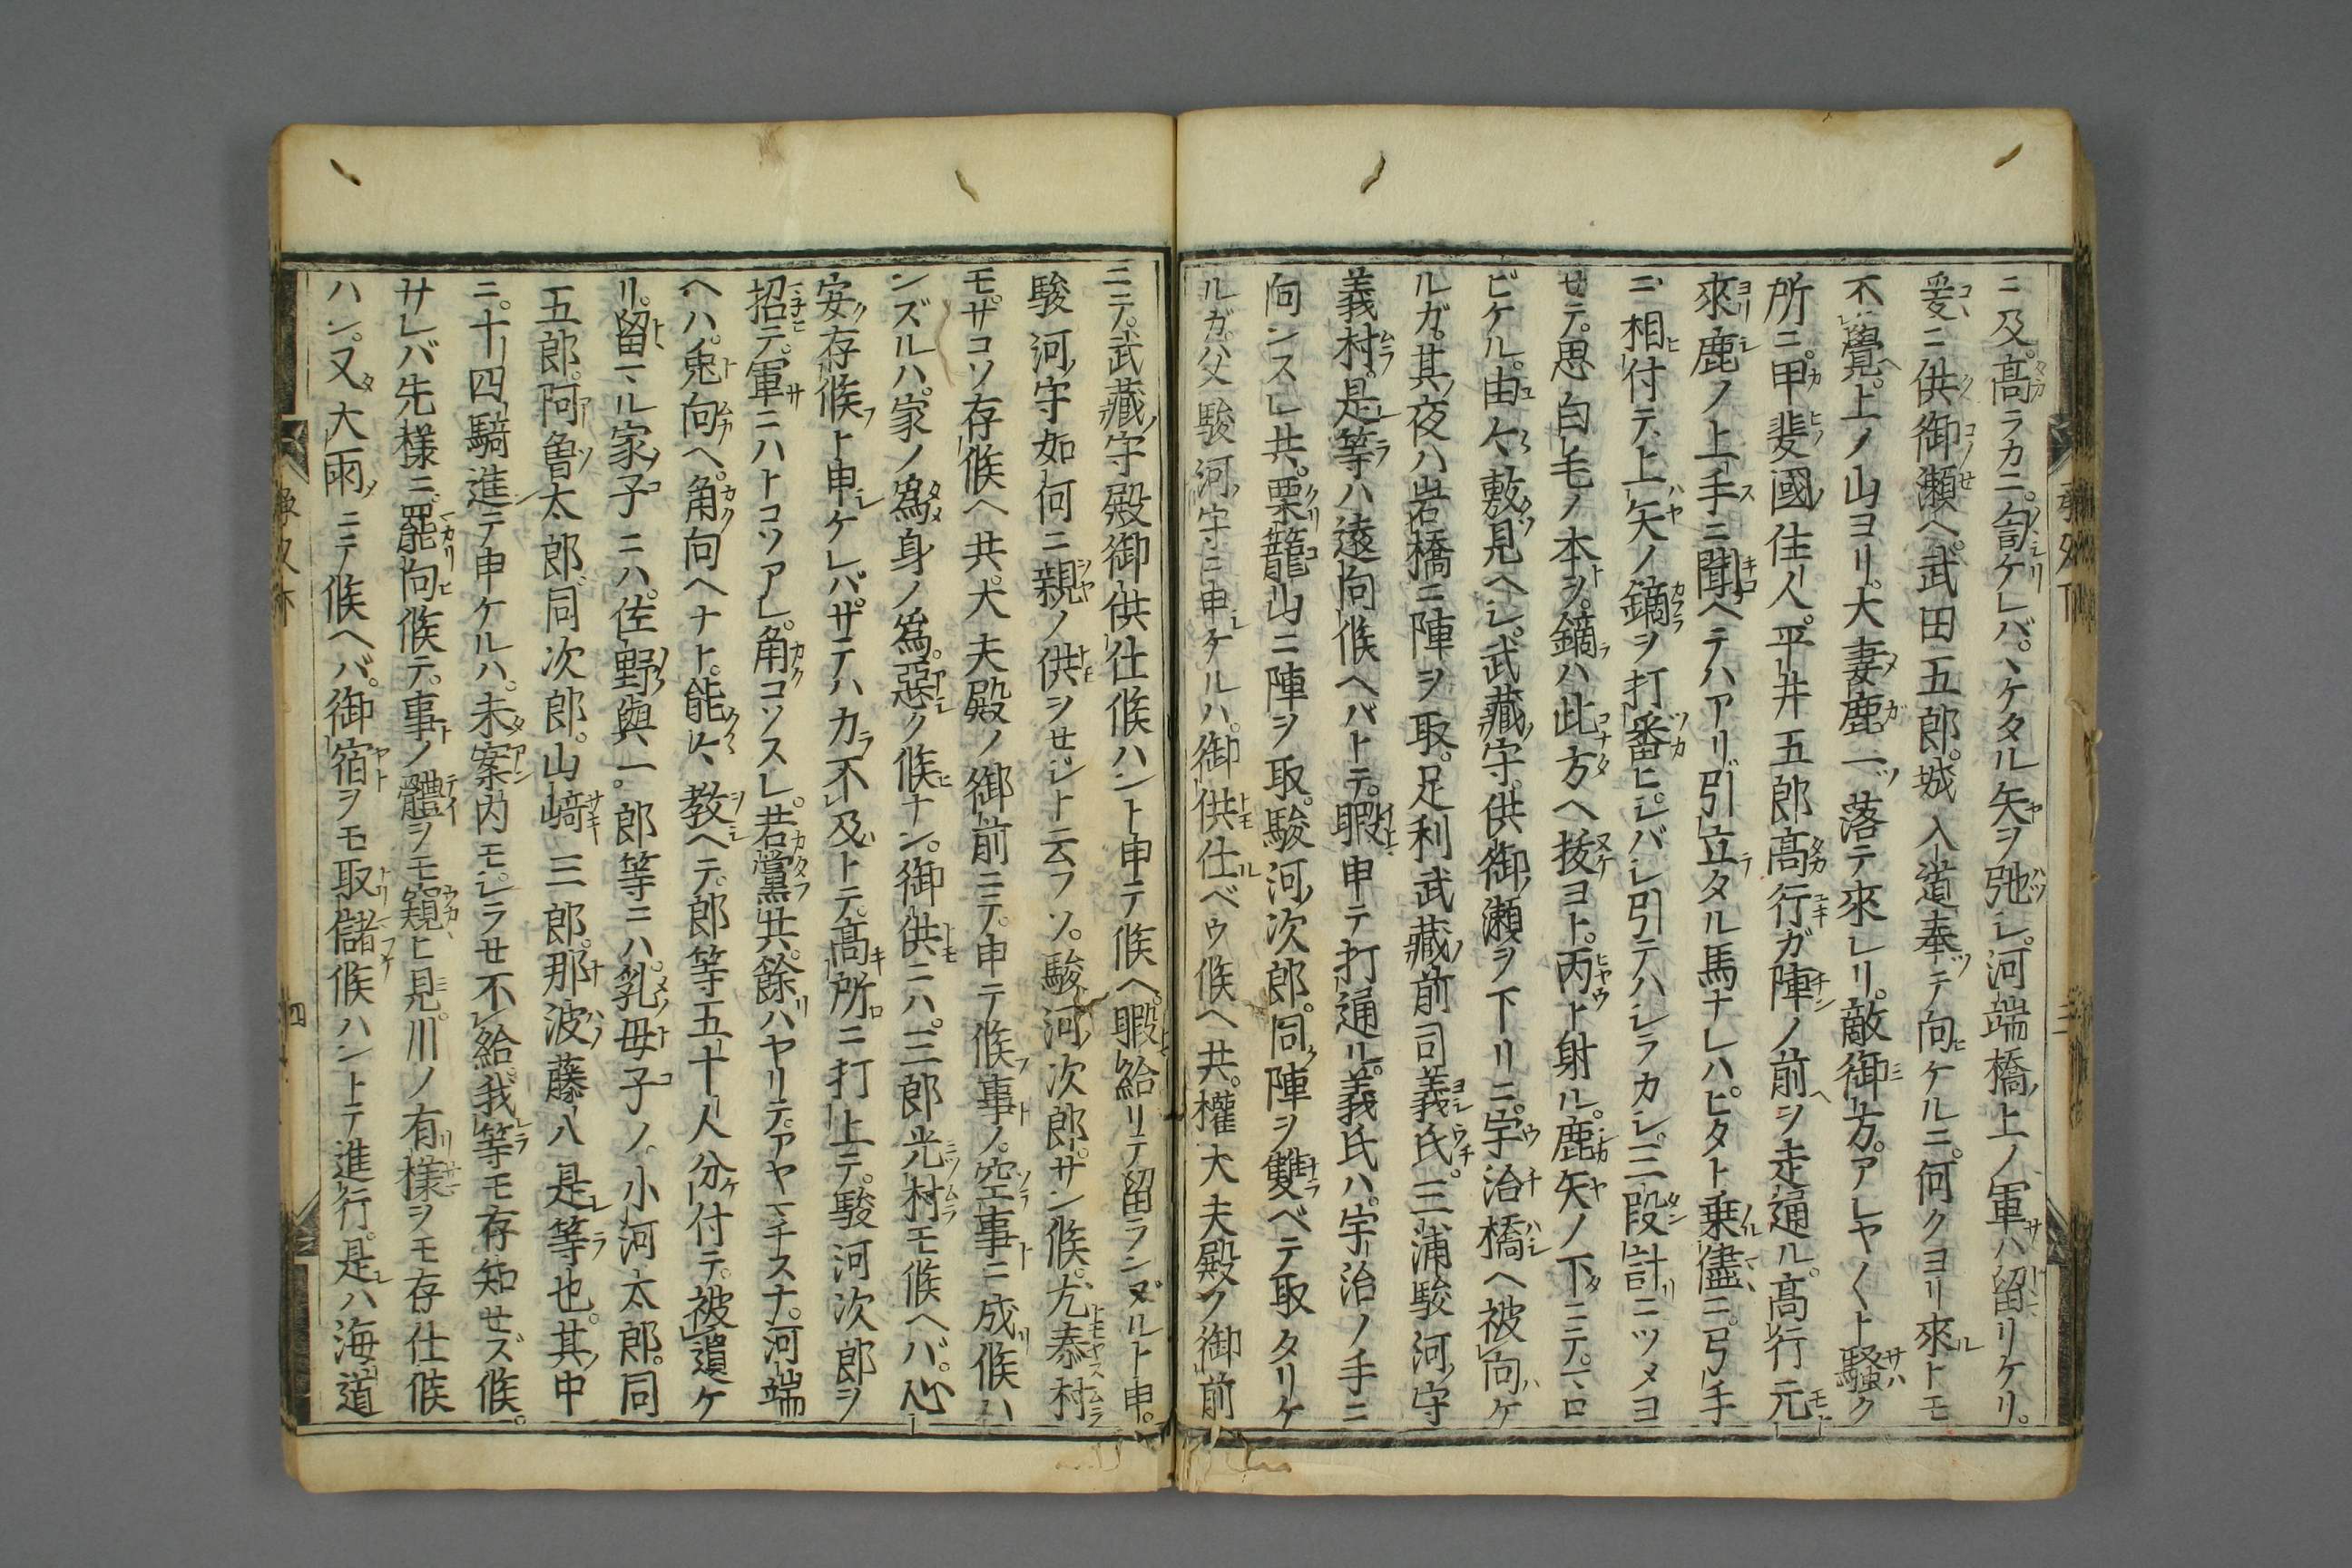 ニ及。髙ラカニ訇ケレバ、ヽケタル矢ヲ弛シ。河端橋上ノ軍ハ留リケリ。
爰ニ供御瀬ヘ。武田五郎。城入道奉テ向ケルニ。何クヨリ來トモ
不覺。上ノ山ヨリ。大妻鹿一落テ來レリ。敵御方。アレヤ〱ト騷ク
所ニ。甲斐國住人。平井五郎髙行ガ陣ノ前ヲ走通ル。髙行元
來鹿ノ上手ニ聞ヘテハアリ。引立タル馬ナレハ。ヒタト乗儘ニ。弓手
ニ相付テ。上矢ノ鏑ヲ打番ヒ。シバシ引テハシラカシ。三段計ニツメヨ
セテ。思白毛ノ本ヲ。鏑ハ此方ヘ抜ヨト。丙ト射ル。鹿矢ノ下ニテ。マロ
ビケル。由ヽ敷見ヘシ。武藏守。供御瀬ヲ下リニ。宇治橋ヘ被向ケ
ルガ。其夜ハ岩橋ニ陣ヲ取。足利武藏前司義氏。三浦駿河守
義村。是等ハ遠向候ヘバトテ。暇申テ打通ル。義氏ハ。宇治ノ手ニ
向ンスレ共。栗籠山ニ陣ヲ取。駿河次郎。同陣ヲ雙ベテ取タリケ
ルガ。父駿河守ニ申ケルハ。御供仕ベウ候ヘ共。權大夫殿ノ御前
ニテ。武藏守殿御供仕候ハント申テ候ヘ。暇給リテ留ランズルト申。
駿河守如何ニ親ノ供ヲセジト云フソ。駿河次郎。サン候。尤泰村
モサコソ存候ヘ共。大夫殿ノ御前ニテ。申テ候事ノ。空事ニ成候ハ
ンズルハ。家ノ爲身ノ爲。惡ク候ナン。御供ニハ。三郎光村モ候ヘバ。心
安存候ト申ケレバ。サテハカ不及トテ。髙所ニ打上テ。駿河次郎ヲ
招テ。軍ニハトコソアレ。角コソスレ。若黨共。餘ハヤリテ。アヤマチスナ。河端
ヘハ。兎向ヘ。角向ヘナト。能々教ヘテ。郎等五十人分付テ。被遣ケ
リ。留マル家子ニハ。佐野與一。郎等ニハ。乳母子ノ。小河太郎。同
五郎。阿魯太郎。同次郎。山﨑三郎。那波藤八是等也。其中
ニ。十四騎進テ申ケルハ。未案内モシラセ不給。我等モ存知セズ候。
サレバ先様ニ罷向候テ。事ノ體ヲモ窺ヒ見。川ノ有様ヲモ存仕候
ハン。又大雨ニテ候ヘバ。御宿ヲモ取儲候ハントテ進行。是ハ海道
四